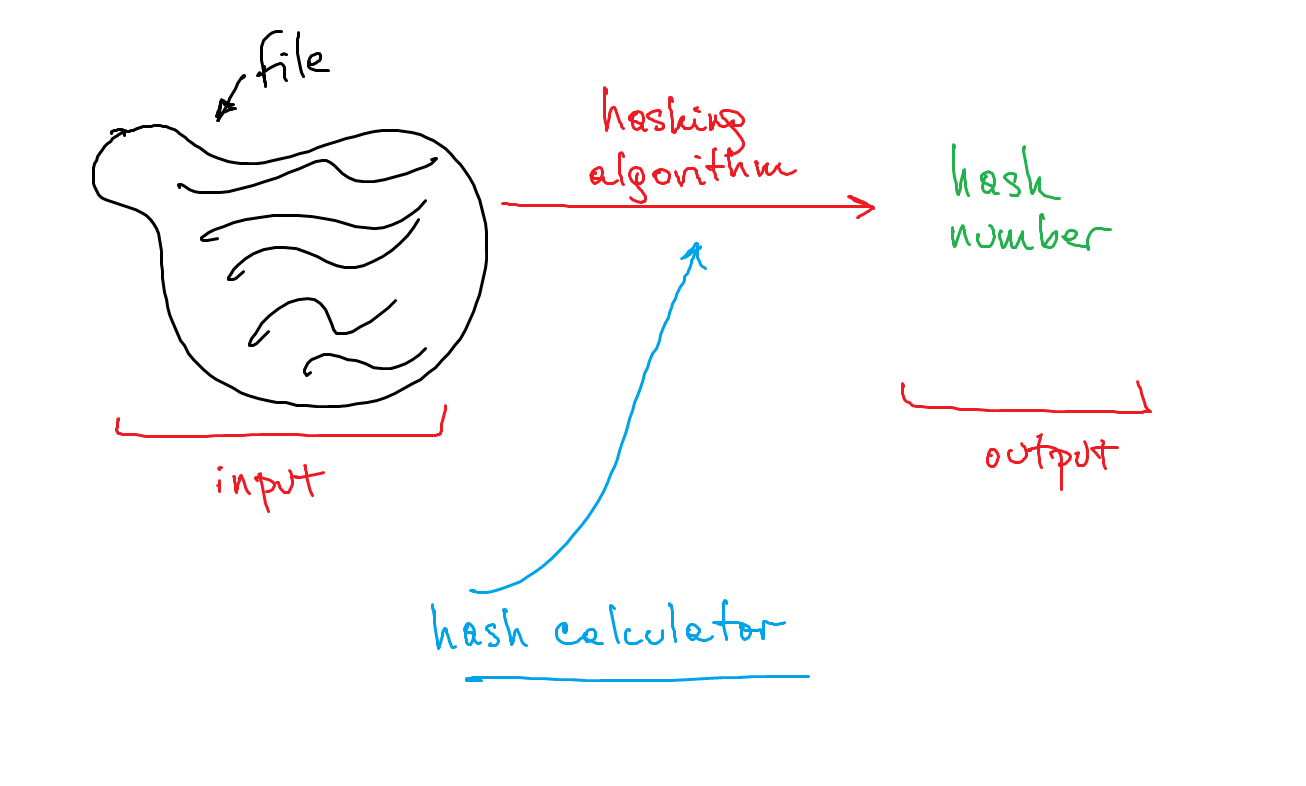 file
hashing
algorithm
hash
number
input
output
hash calculator